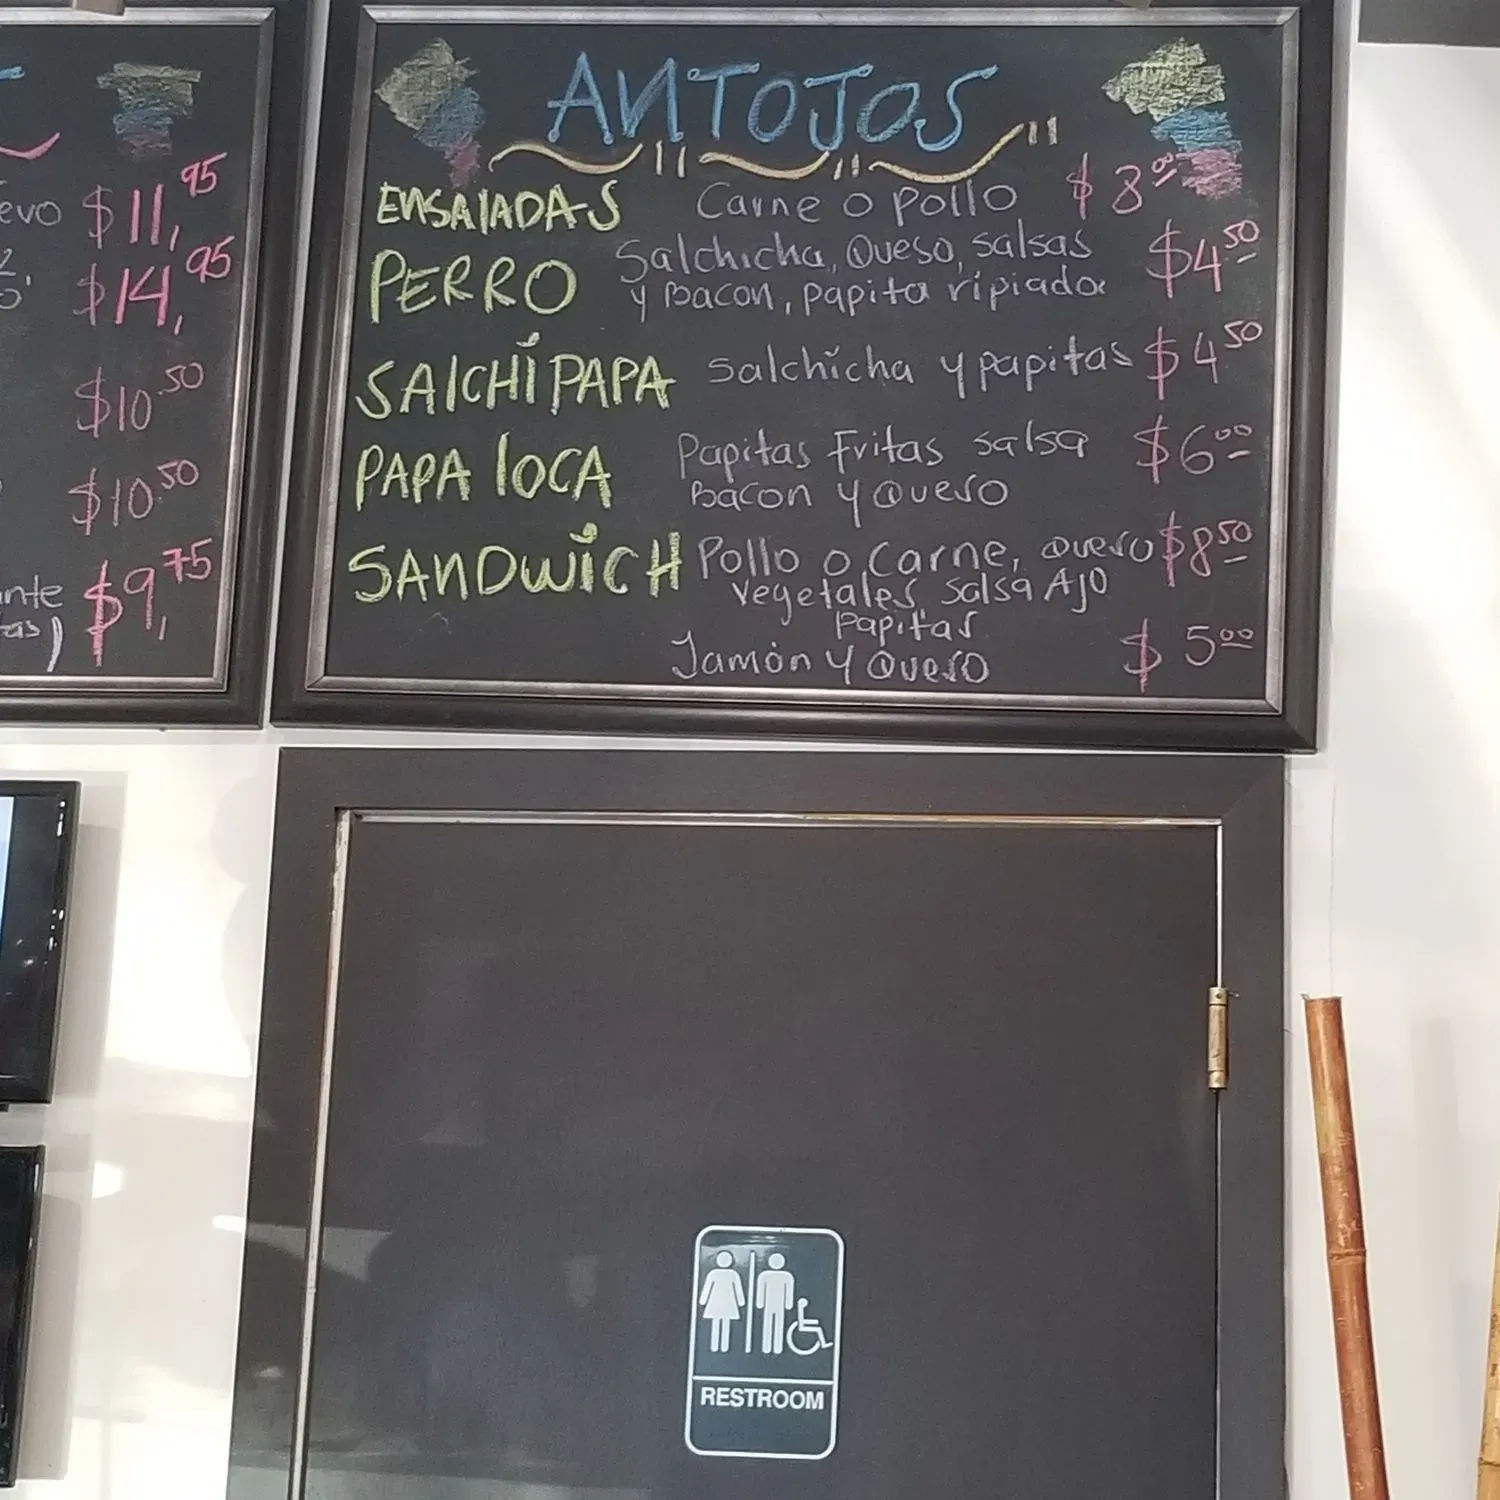 evo $11,95
$14,95
$10.50
$10.50
ante
tas) $9,75
ANTOJOS
ENSAlADAS Carne o pollo $8.00
PERRO Salchicha, Queso, salsas $4.50
y Bacon, papita ripiada
SAlCHiPAPA Salchicha y papitas $4.50
PAPA lOCA Papitas Fritas salsa $6.00
Bacon y Queso
SANDWiCH Pollo o Carne, Queso $8.50
Vegetales, Salsa Ajo
papitas
Jamón y Queso $5.00
RESTROOM